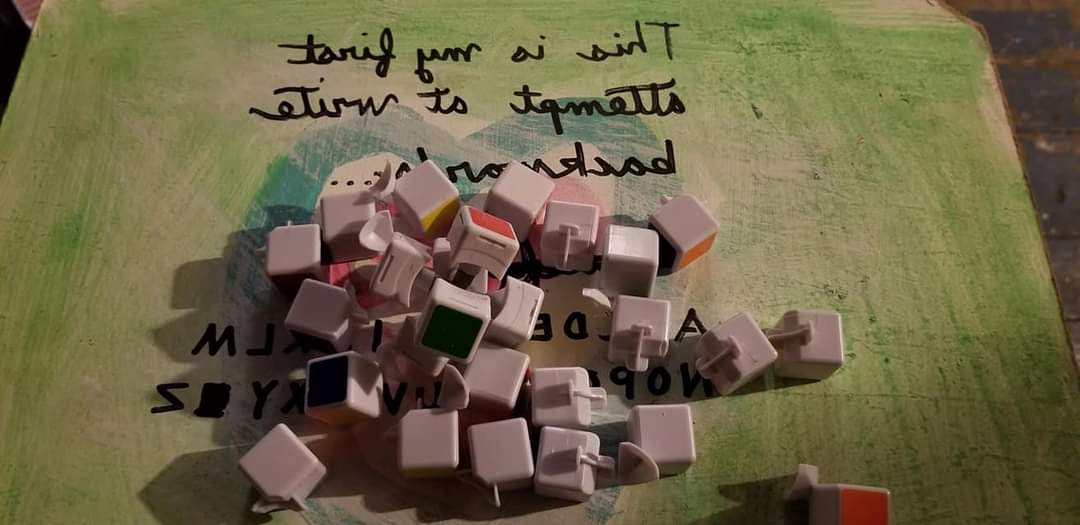 This is my first
attempt to write
backwards...
A DE I KLM
NOP UV XY Z